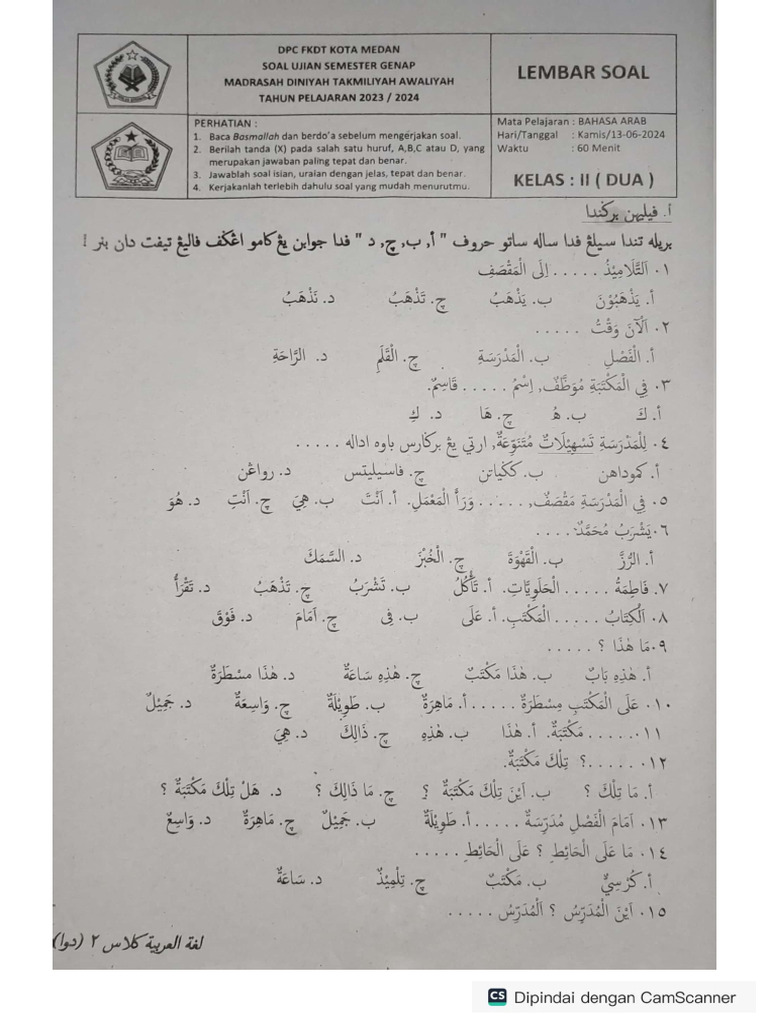 DPC FKDT KOTA MEDAN
SOAL UJIAN SEMESTER GENAP
MADRASAH DINIYAH TAKMILIYAH AWALIYAH
TAHUN PELAJARAN 2023 / 2024
LEMBAR SOAL
PERHATIAN :
1. Baca Basmallah dan berdo'a sebelum mengerjakan soal.
2. Berilah tanda (X) pada salah satu huruf, A,B,C atau D, yang
merupakan jawaban paling tepat dan benar.
3. Jawablah soal isian, uraian dengan jelas, tepat dan benar.
4. Kerjakanlah terlebih dahulu soal yang mudah menurutmu.
Mata Pelajaran : BAHASA ARAB
Hari/Tanggal : Kamis/13-06-2024
Waktu : 60 Menit
KELAS : II ( DUA )
أ. فيليهن بركندا
بريله تندا سيلڠ فدا ساله ساتو حروف " أ, ب, چ, د " فدا جوابن يڠ كامو اڠڬف فاليڠ تيفت دان بنر !
١. اَلتَّلَامِيْذُ ..... اِلَى الْمَقْصَفِ
أ. يَذْهَبُوْنَ ب. يَذْهَبُ چ. تَذْهَبُ د. نَذْهَبُ
٢. اَلْآنَ وَقْتُ .....
أ. الْفَصْلِ ب. الْمَدْرَسَةِ چ. الْقَلَمِ د. الرَّاحَةِ
٣. فِي الْمَكْتَبَةِ مُوَظَّفٌ, اِسْمُ ..... قَاسِمٌ.
أ. كَ ب. هُ چ. هَا د. كِ
٤. لِلْمَدْرَسَةِ تَسْهِيْلَاتٌ مُتَنَوِّعَةٌ, ارتي يڠ بركارس باوه اداله .....
أ. كموداهن ب. ككياتن چ. فاسيليتس د. رواڠن
٥. فِي الْمَدْرَسَةِ مَقْصَفٌ, ..... وَرَأَ الْمَعْمَلِ. أ. اَنْتَ ب. هِيَ چ. اَنْتِ د. هُوَ
٦. يَشْرَبُ مُحَمَّدٌ ....
أ. الرُّزَّ ب. الْقَهْوَةَ چ. الْخُبْزَ د. السَّمَكَ
٧. فَاطِمَةُ ..... الْحَلَوِيَّاتِ. أ. تَأْكُلُ ب. تَشْرَبُ چ. تَذْهَبُ د. تَقْرَأُ
٨. اَلْكِتَابُ ..... الْمَكْتَبِ. أ. عَلَى ب. فِى چ. اَمَامَ د. فَوْقَ
٩. مَا هٰذَا ؟ .....
أ. هٰذِهِ بَابٌ ب. هٰذَا مَكْتَبٌ چ. هٰذِهِ سَاعَةٌ د. هٰذَا مِسْطَرَةٌ
١٠. عَلَى الْمَكْتَبِ مِسْطَرَةٌ ..... أ. مَاهِرَةٌ ب. طَوِيْلَةٌ چ. وَاسِعَةٌ د. جَمِيْلٌ
١١. ..... مَكْتَبَةٌ. أ. هٰذَا ب. هٰذِهِ چ. ذَالِكَ د. هِيَ
١٢. .....؟ تِلْكَ مَكْتَبَةٌ.
أ. مَا تِلْكَ ؟ ب. اَيْنَ تِلْكَ مَكْتَبَةٌ ؟ چ. مَا ذَالِكَ ؟ د. هَلْ تِلْكَ مَكْتَبَةٌ ؟
١٣. اَمَامَ الْفَصْلِ مُدَرِّسَةٌ ..... أ. طَوِيْلَةٌ ب. جَمِيْلٌ چ. مَاهِرَةٌ د. وَاسِعٌ
١٤. مَا عَلَى الْحَائِطِ ؟ عَلَى الْحَائِطِ .....
أ. كُرْسِيٌّ ب. مَكْتَبٌ چ. تِلْمِيْذٌ د. سَاعَةٌ
١٥. اَيْنَ الْمُدَرِّسُ ؟ اَلْمُدَرِّسُ .....
لغة العربية كلاس ٢ (دوا)
CS Dipindai dengan CamScanner